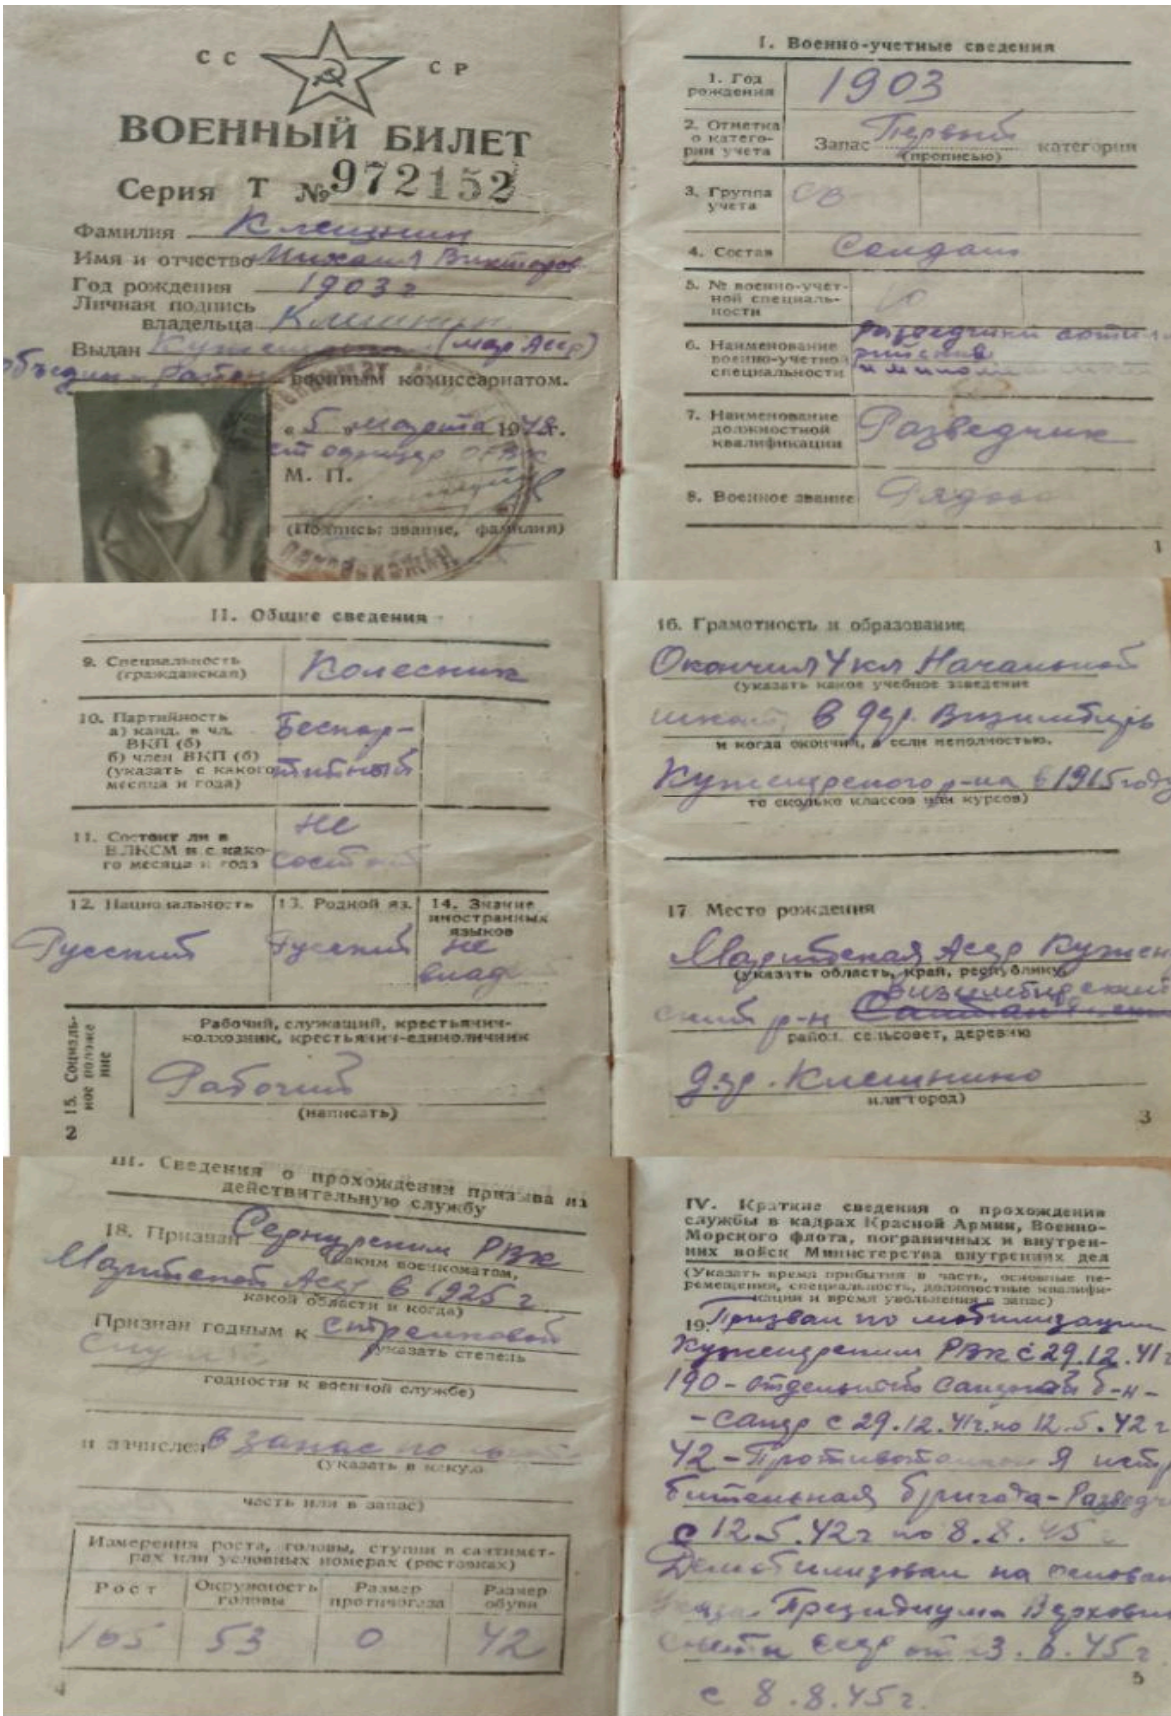 СС СР
ВОЕННЫЙ БИЛЕТ
Серия Т № 972152
Фамилия Клешнин
Имя и отчество Михаил Викторов
Год рождения 1903 г
Личная подпись
владельца Клешнин
Выдан (Мар Асср)
объедин. район военным комиссариатом.
« 5 » марта 1948 г.
М. П.
(Подпись: звание, фамилия)
I. Военно-учетные сведения
1. Год
рождения
1903
2. Отметка
о катего-
рии учета
Запас Первый категории
(прописью)
3. Группа
учета
СВ
4. Состав Солдат
5. № военно-учет-
ной специаль-
ности
6. Наименование
военно-учетной
специальности
разведчики
7. Наименование
должностной
квалификации
Разведчик
8. Военное звание Рядово
1
II. Общие сведения
9. Специальность
(гражданская)
Колесник
10. Партийность
а) канд. в чл.
ВКП (б)
б) член ВКП (б)
(указать с какого
месяца и года)
Беспар-
тийный
11. Состоит ли в
ВЛКСМ и с како-
го месяца и года
не
состоит
12. Национальность 13. Родной яз. 14. Знание
иностранных
языков
Русский Русский не
влад
15. Социаль-
ное положе
ние
Рабочий, служащий, крестьянин-
колхозник, крестьянин-единоличник
Рабочий
(написать)
2
16. Грамотность и образование
Окончил 4 кл Начальной
(указать какое учебное заведение
в дер. Визимбирь
и когда окончил, а если неполностью,
Куженерского р-на в 1915 году
то сколько классов или курсов)
17. Место рождения
Марийская Асср Кужен
(указать область, край, республику,
визимбирский
ский р-н
район, сельсовет, деревню
дер. Клешнино
или город)
3
III. Сведения о прохождении призыва на
действительную службу
18. Призван Сернурским РВК
(каким военкоматом,
Марийской Асср в 1925 г.
какой области и когда)
Признан годным к стрелковой
(указать степень
годности к военной службе)
и зачислен в запас по
(указать в какую
часть или в запас)
Измерения роста, головы, ступни в сантимет-
рах или условных номерах (ростовках)
Рост Окружность
головы Размер
противогаза Размер
обуви
165 53 0 42
4
IV. Краткие сведения о прохождении
службы в кадрах Красной Армии, Военно-
Морского флота, пограничных и внутрен-
них войск Министерства внутренних дел
(Указать время прибытия в часть, основные пе-
ремещения, специальность, должностные квалифи-
кации и время увольнения в запас)
19. Призван по мобилизации
Куженерским РВК с 29.12.41 г
190 - отдельной б-н -
с 29.12.41 г. по 12.5.42 г
42 -
бительная бригада - Разведч
с 12.5.42 г по 8.8.45
Демобилизован на основан
Президиума Верховн
ссср от 23.6.45 г.
5
с 8.8.45 г.